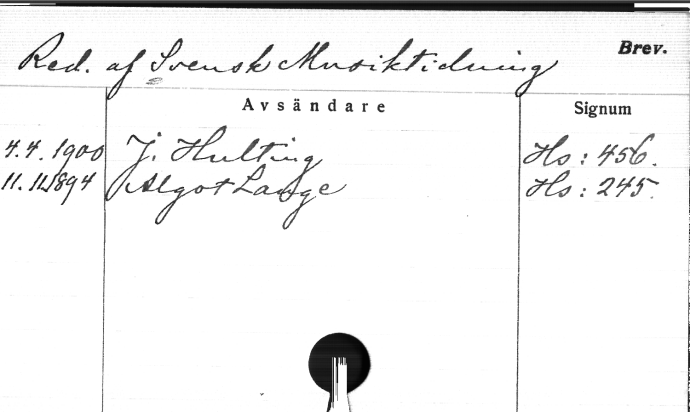 Red. af Svensk Musiktidning Brev.
Avsändare Signum
4.4. 1900 J. Hulting Hs: 456.
11.11.1894 Algot Lange Hs: 245.